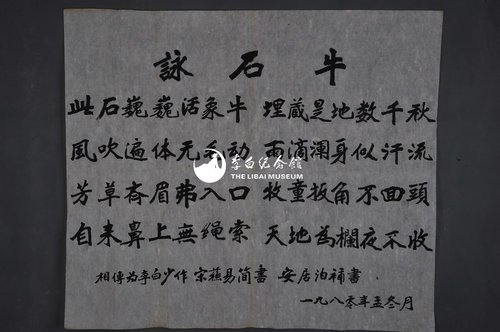 詠石牛
此石巍巍活象牛 埋蔵是地数千秋
風吹遍体无毛动 雨滴渾身似汗流
芳草斉眉弗入口 牧童扳角不回頭
自来鼻上無绳索 天地為欄夜不收
相傳为李白少作 宋蘇易简書 安居泊補書
一九八零年孟冬月
李白纪念馆
THE LIBAI MUSEUM